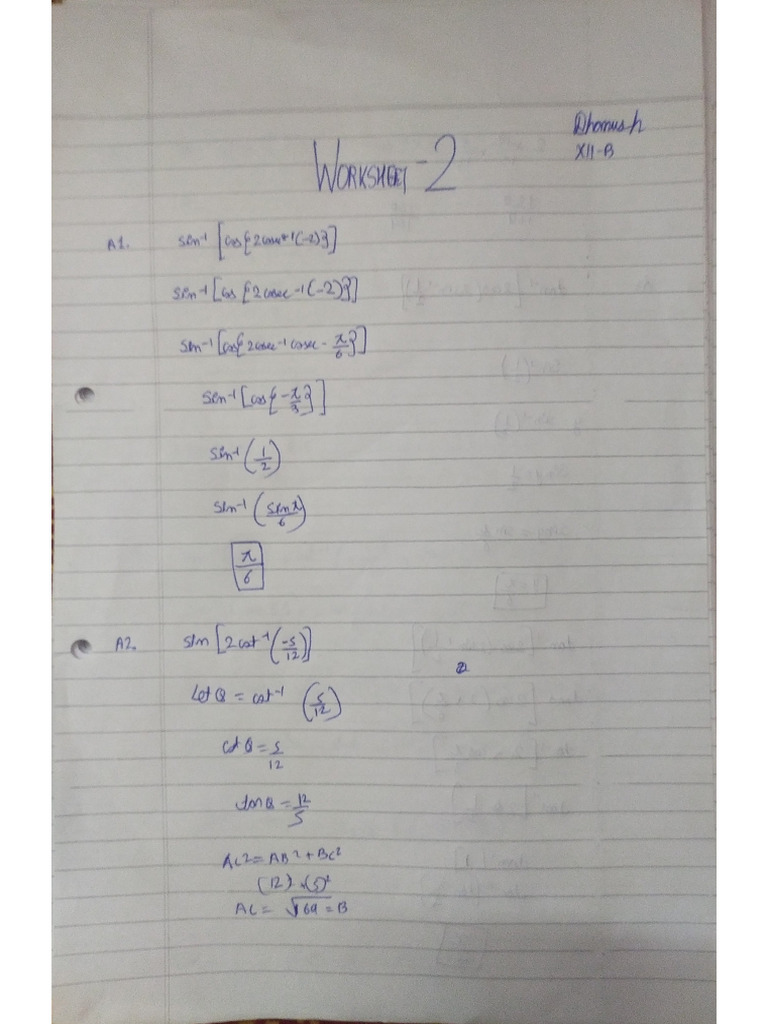 Dhomush
XII-B
WORKSHEET-2
A1. sin-1 [cos{2cosec-1(-2)}]
sin-1[cos {2cosec-1(-2)}]
sin-1[cos{2cosec-1 cosec - π/6}]
sin-1[cos{-π/3}]
sin-1(1/2)
sin-1(sinπ/6)
π/6
A2. sin [2cot-1(-5/12)]
Let θ = cot-1 (5/12)
cot θ = 5/12
tan θ = 12/5
AC2 = AB2 + BC2
(12)2 + (5)2
AC = √169 = B